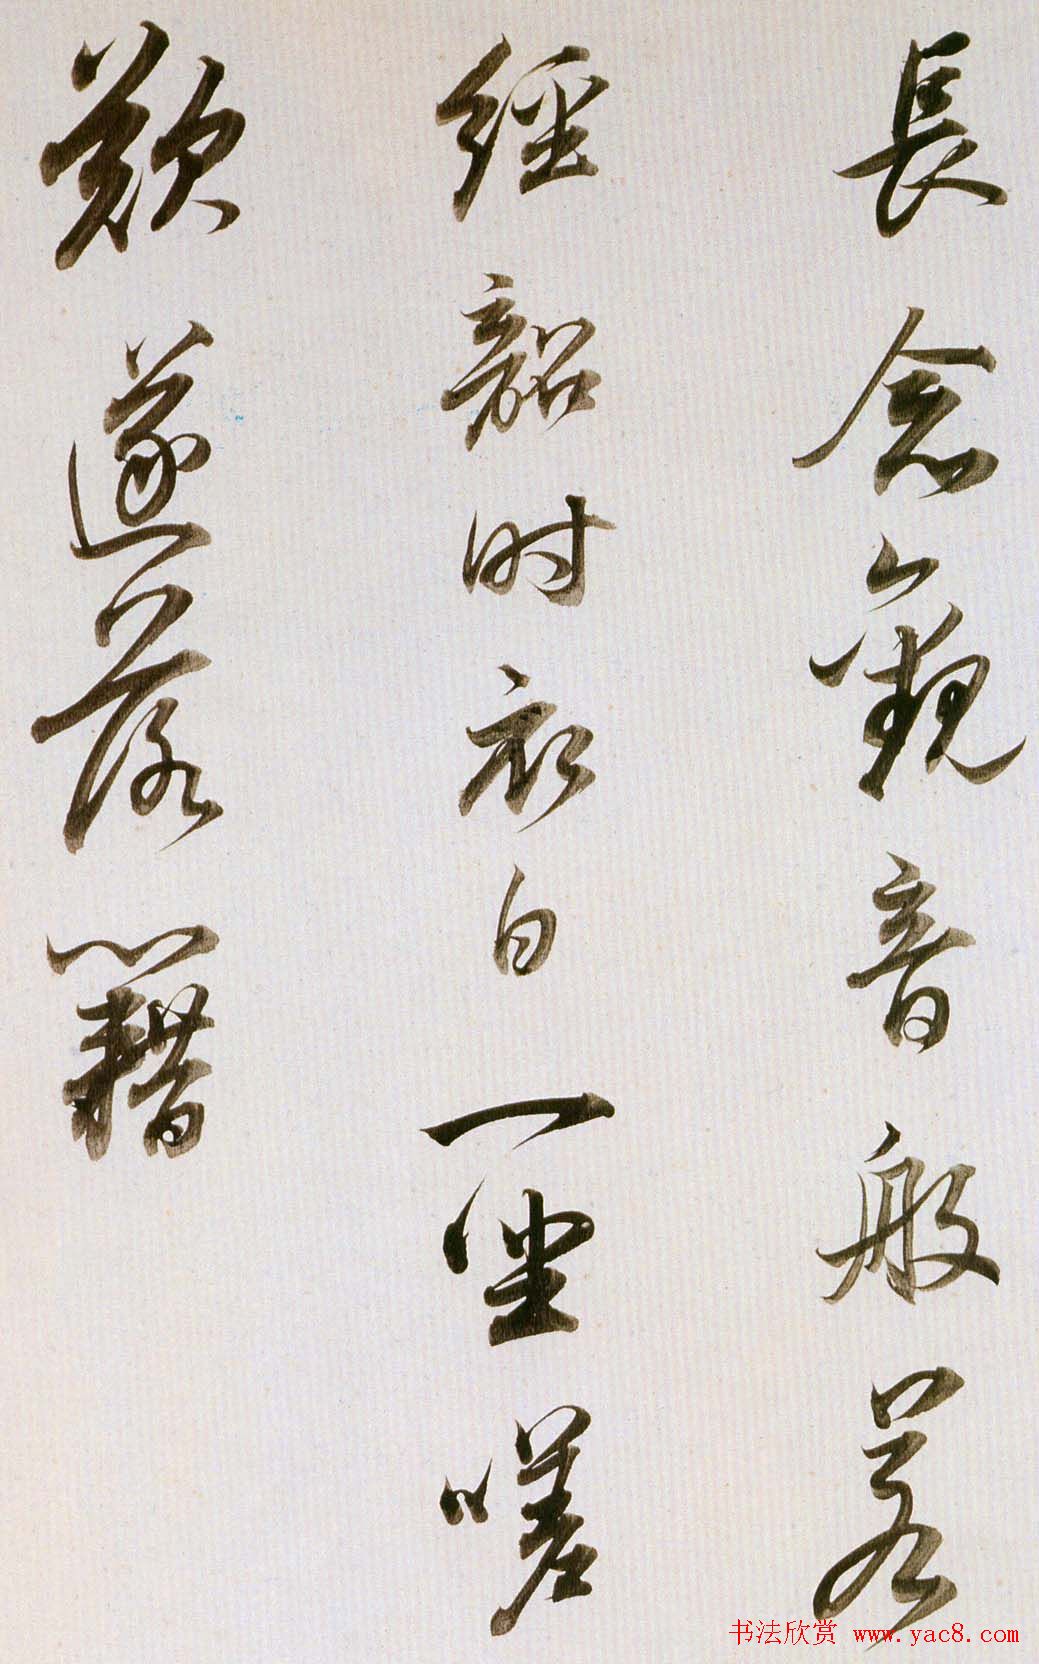 長念觀音般若
經韶时衣白一坐嗟
歎遂落籍
书法欣赏 www.yac8.com